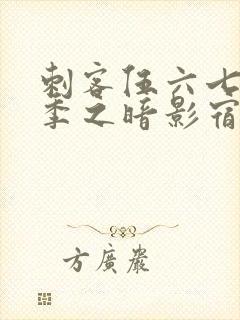 刺客伍六七
季之暗影宿
方廣嚴